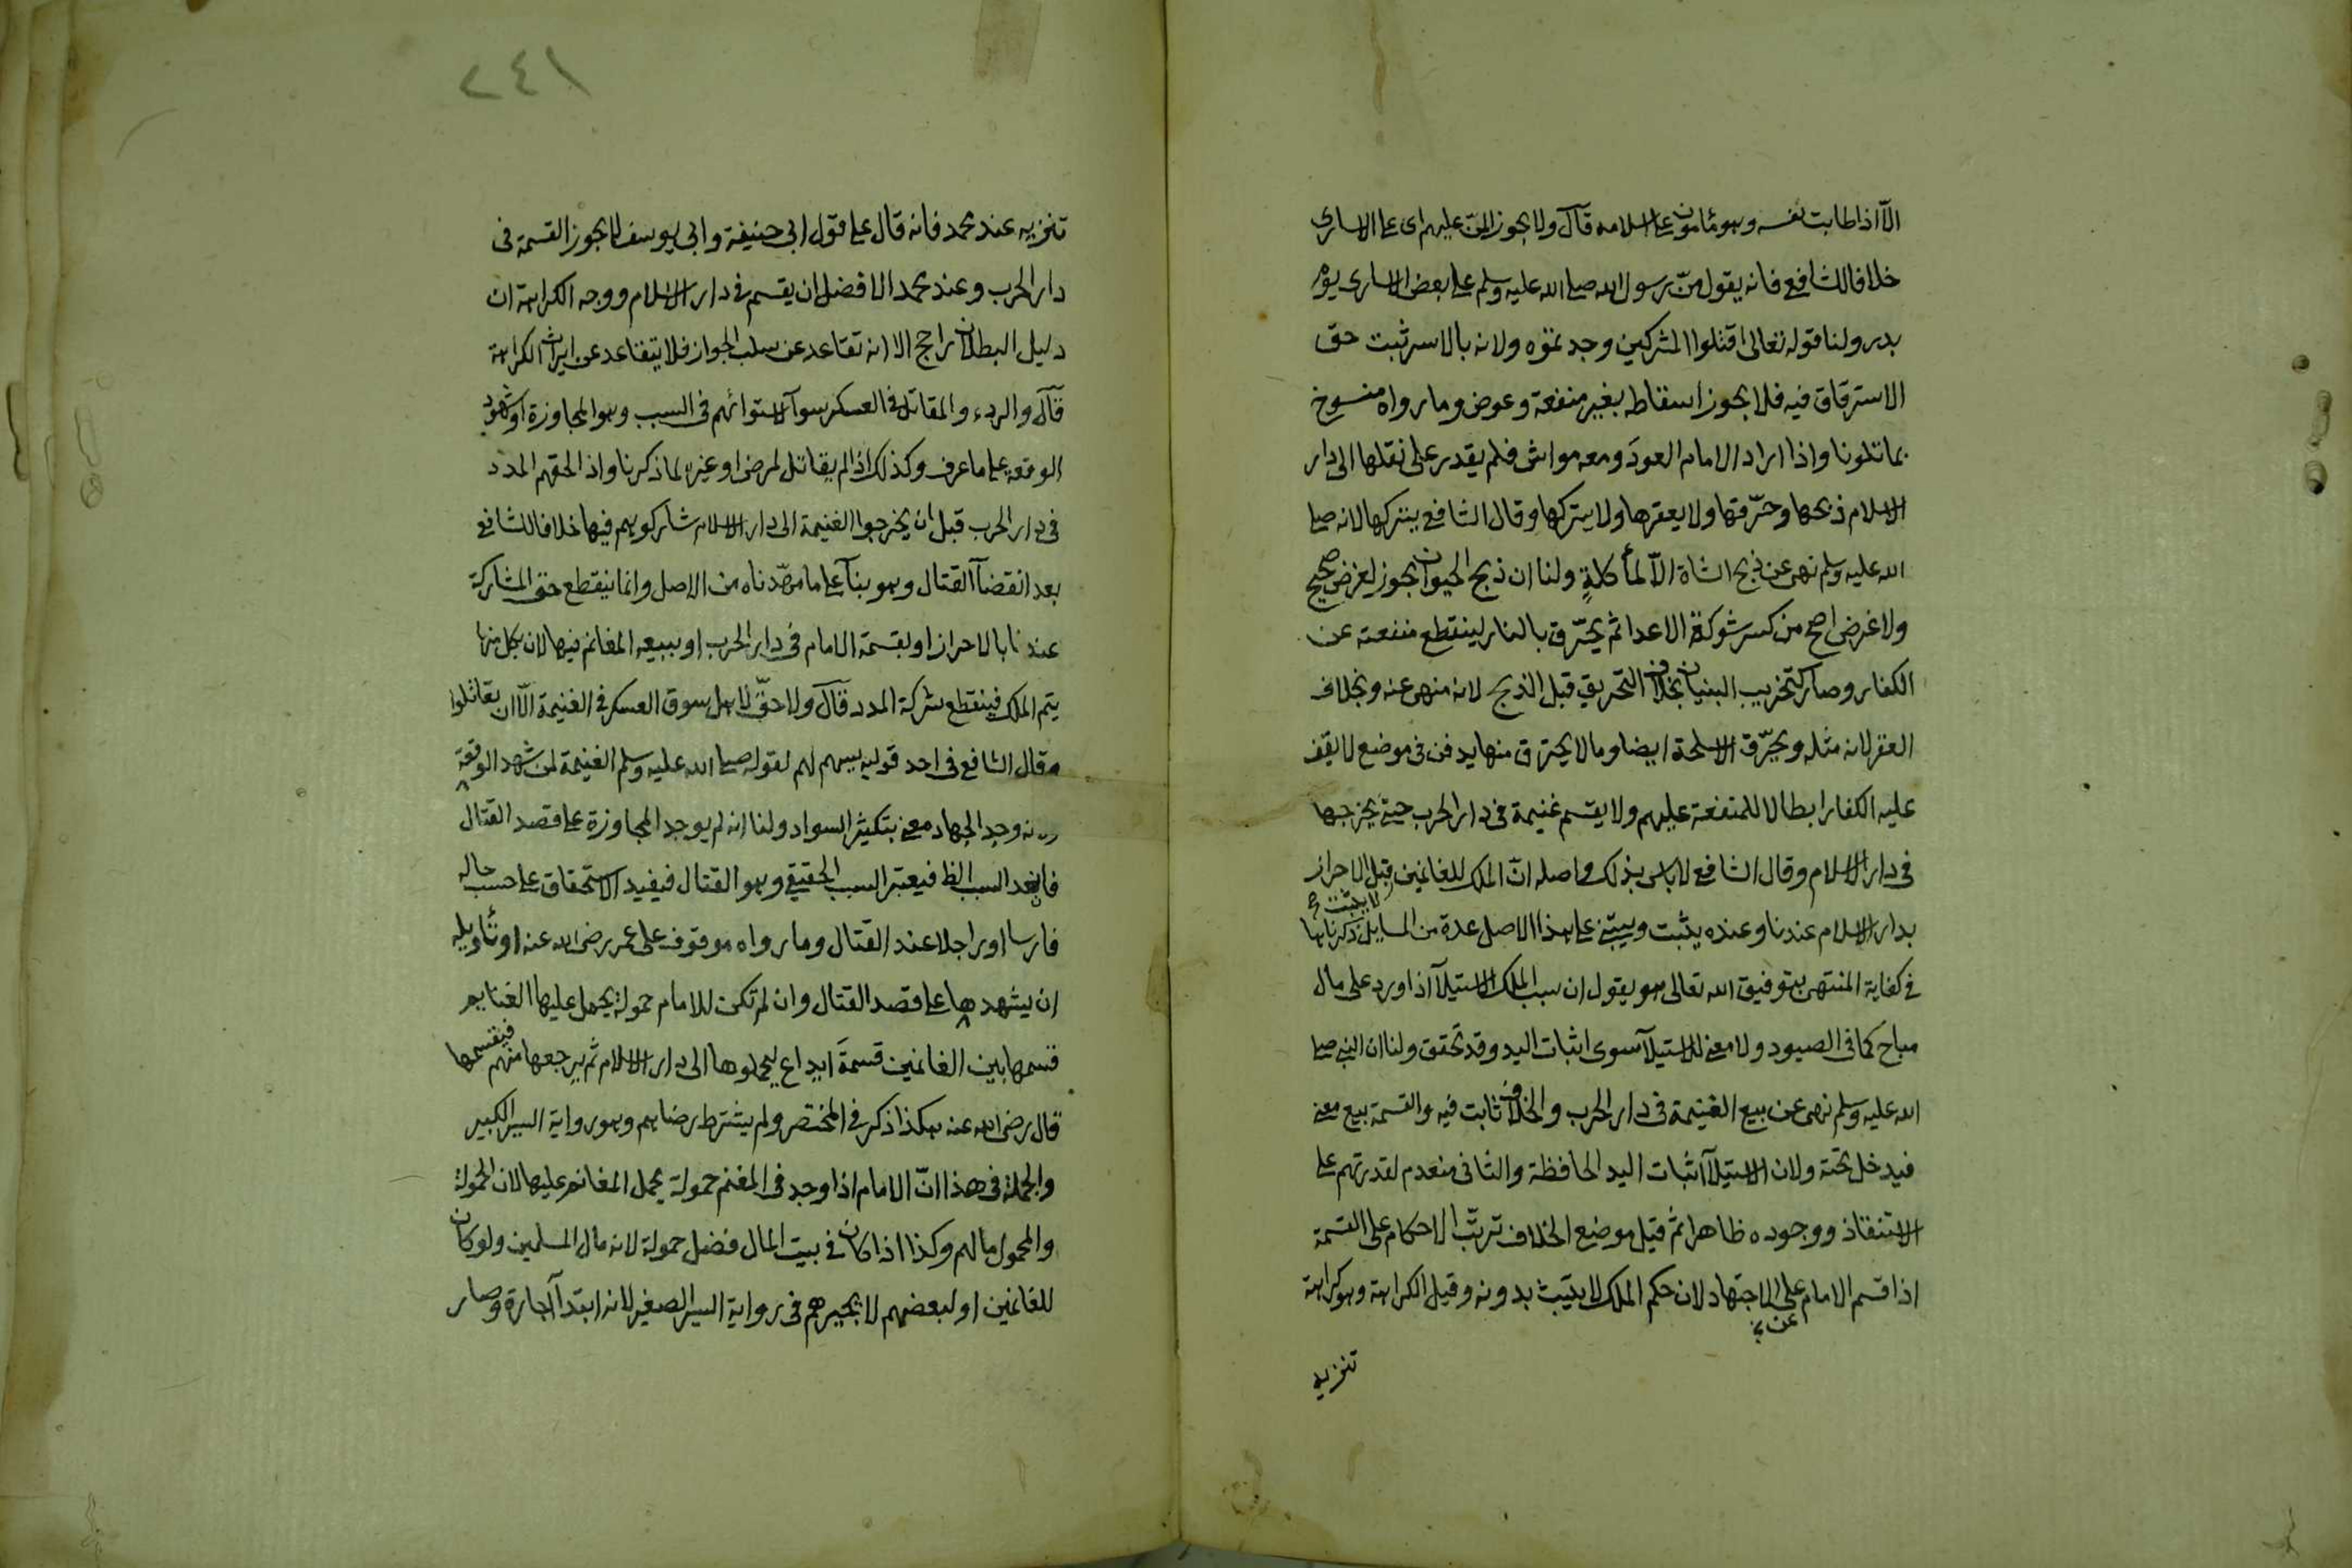 الّا اذا طابت نفسه وهو مأمون على اسلامه قال ولا يجوز المنّ عليهم اى على الاسارى
خلافا للشافعى فانه يقول منّ رسول الله صلى الله عليه وسلم على بعض الاسارى يوم
بدر ولنا قوله تعالى اقتلوا المشركين وجدتموه ولانه بالاسر ثبت حق
الاسترقاق فيه فلا يجوز اسقاطه بغير منفعة وعوض وما رواه منسوخ
بما تلونا واذا اراد الامام العودَ ومعه مواش فلم يقدر على نقلها الى دار
الاسلام ذبحها وحرّقها ولا يعقرها ولا يتركها وقال الشافعى يتركها لانه صلى
الله عليه وسلم نهى عن ذبح الشاة الّا لمأكلةٍ ولنا ان ذبح الحيوان يجوز لغرض صحيح
ولا غرض اصح من كسر شوكة الاعدا ثم يحرّق بالنار لينقطع منفعته عن
الكفار وصار كتخريب البنيان بخلاف التحريق قبل الذبح لانه منهى عنه وبخلاف
العقر لانه مثله ويحرّق الاسلحة ايضا وما لا يحترق منها يدفن فى موضع لا يقف
عليه الكفار ابطالا للمنفعة عليهم ولا يقسم غنيمة فى دار الحرب حتى يخرجها
فى دار الاسلام وقال الشافعى لا باس بذلك واصله انّ الملك للغانمين لا يثبت قبل الاحراز
بدار الاسلام عندنا وعنده يثبت ويبتنى على هذا الاصل عدة من المسايل ذكرناها
فى كفاية المنتهى بتوفيق الله تعالى هو يقول ان سبب الملك الاستيلآ اذا ورد على مال
مباح كما فى الصيود ولا معنى للاستيلآ سوى اثبات اليد وقد تحقق ولنا ان النبى صلى
الله عليه وسلم نهى عن بيع الغنيمة فى دار الحرب والخلاف ثابت فيه والقسمة بيع معنى
فيدخل تحته ولان الاستيلآ اثبات اليد الحافظة والثانى منعدم لقدرتهم على
الاستنقاذ ووجوده ظاهرا ثم قيل موضع الخلاف ترتّب الاحكام على القسمة
اذا قسم الامام على الاجتهاد لان حكم الملك لا يثبت بدونه وقيل الكراهة وهو كراهة
عن
تنزيه
٢٤١
تنزيه عند محمد فانه قال على قول ابى حنيفة وابى يوسف لا يجوز القسمة فى
دار الحرب وعند محمد الافضل ان يقسم فى دار الاسلام ووجه الكراهة ان
دليل البطلان راجح الا انه تقاعد عن سلب الجواز فلا يتقاعد عن ايراث الكراهة
قال والردء والمقاتل فى العسكر سوآ لاستوائهم فى السبب وهو المجاوزة او شهود
الوقعة على ما عرف وكذلك اذا لم يقاتل لمرض او غيره لما ذكرنا واذا لحقهم المدد
فى دار الحرب قبل ان يخرجوا الغنيمة الى دار الاسلام شاركوهم فيها خلافا للشافعى
بعد انقضآ القتال وهو بنآ على ما مهّدناه من الاصل وانما ينقطع حق المشاركة
عندنا بالاحراز او بقسمة الامام فى دار الحرب او ببيعه المغانم فيها لان بكل منها
يتم الملك فينقطع شركة المدد قال ولا حقّ لاهل سوق العسكر فى الغنيمة الّا ان يقاتلوا
وقال الشافعى فى احد قوليه يسهم لهم لقوله صلى الله عليه وسلم الغنيمة لمن شهد الوقعة
ولانه وجد الجهاد معنى بتكثير السواد ولنا انه لم يوجد المجاوزة على قصد القتال
فانعدم السبب الظ فيعتبر السبب الحقيقى وهو القتال فيفيد الاستحقاق على حسب حاله
فارسا او راجلا عند القتال وما رواه موقوف على عمر رضى الله عنه او تأويله
ان يشهدها على قصد القتال وان لم تكن للامام حمولة يحمل عليها الغنايم
قسمها بين الغانمين قسمةَ ايداع ليحملوها الى دار الاسلام ثم يرجعها منهم فيقسمها
قال رضى الله عنه هكذا ذكر فى المختصر ولم يشترط رضاهم وهو رواية السير الكبير
والجملة فى هذا انّ الامام اذا وجد فى المغنم حمولة يحمل المغانم عليها لان الحمولة
والمحمول مالهم وكذا اذا كان فى بيت المال فضل حمولة لانه مال المسلمين ولو كان
للغانمين او لبعضهم لا يجبرهم فى رواية السير الصغير لانه ابتدآ اجارة وصار